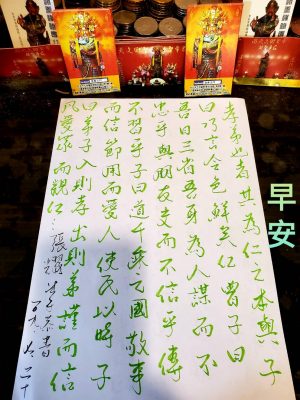 孝弟也者其為仁之本與子
曰巧言令色鮮矣仁曾子曰
吾日三省吾身為人謀而不
忠乎與朋友交而不信乎傳
不習乎子曰道千乘之國敬事
而信節用而愛人使民以時子
曰弟子入則孝出則弟謹而信
汎愛眾而親仁
早安